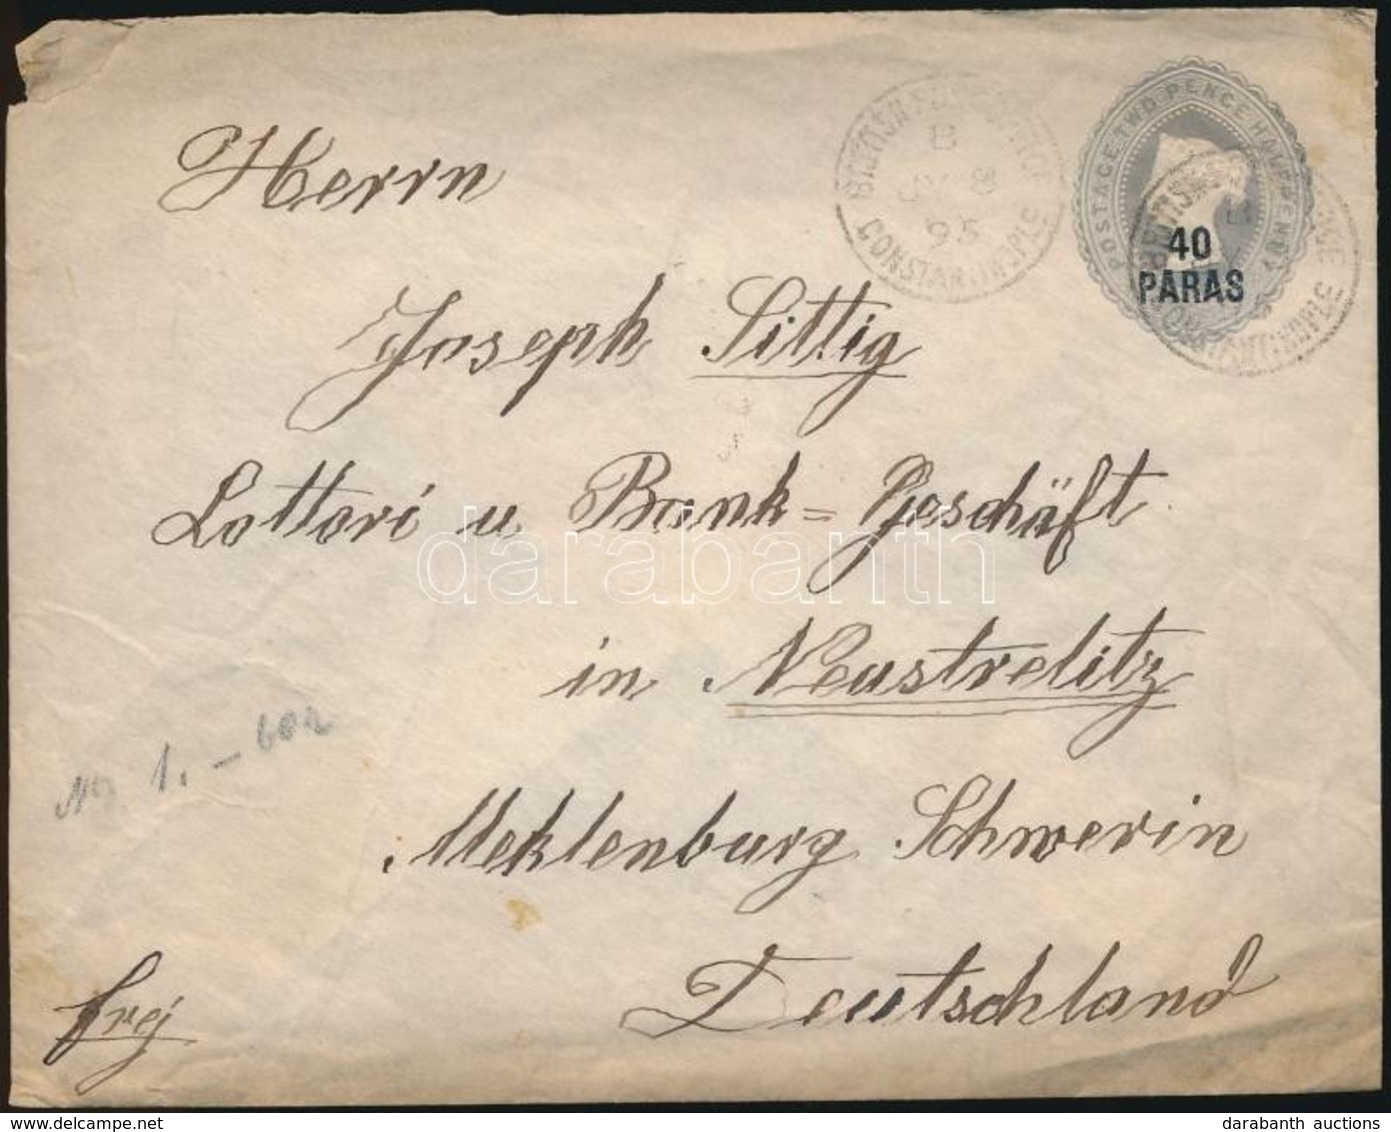 BRITISH POST OFFICE
B
JY 8
95
CONSTANTINOPLE
POSTAGE TWO PENCE HALFPENNY
40
PARAS
BRITISH OFFICE
CONSTANTINOPLE
Herrn
Joseph Sittig
Lottori u Bank=Geschäft
darabanth
in Neustrelitz
1.-
Meklenburg Schwerin
frej
Deutschland
www.delcampe.net
darabanth auctions